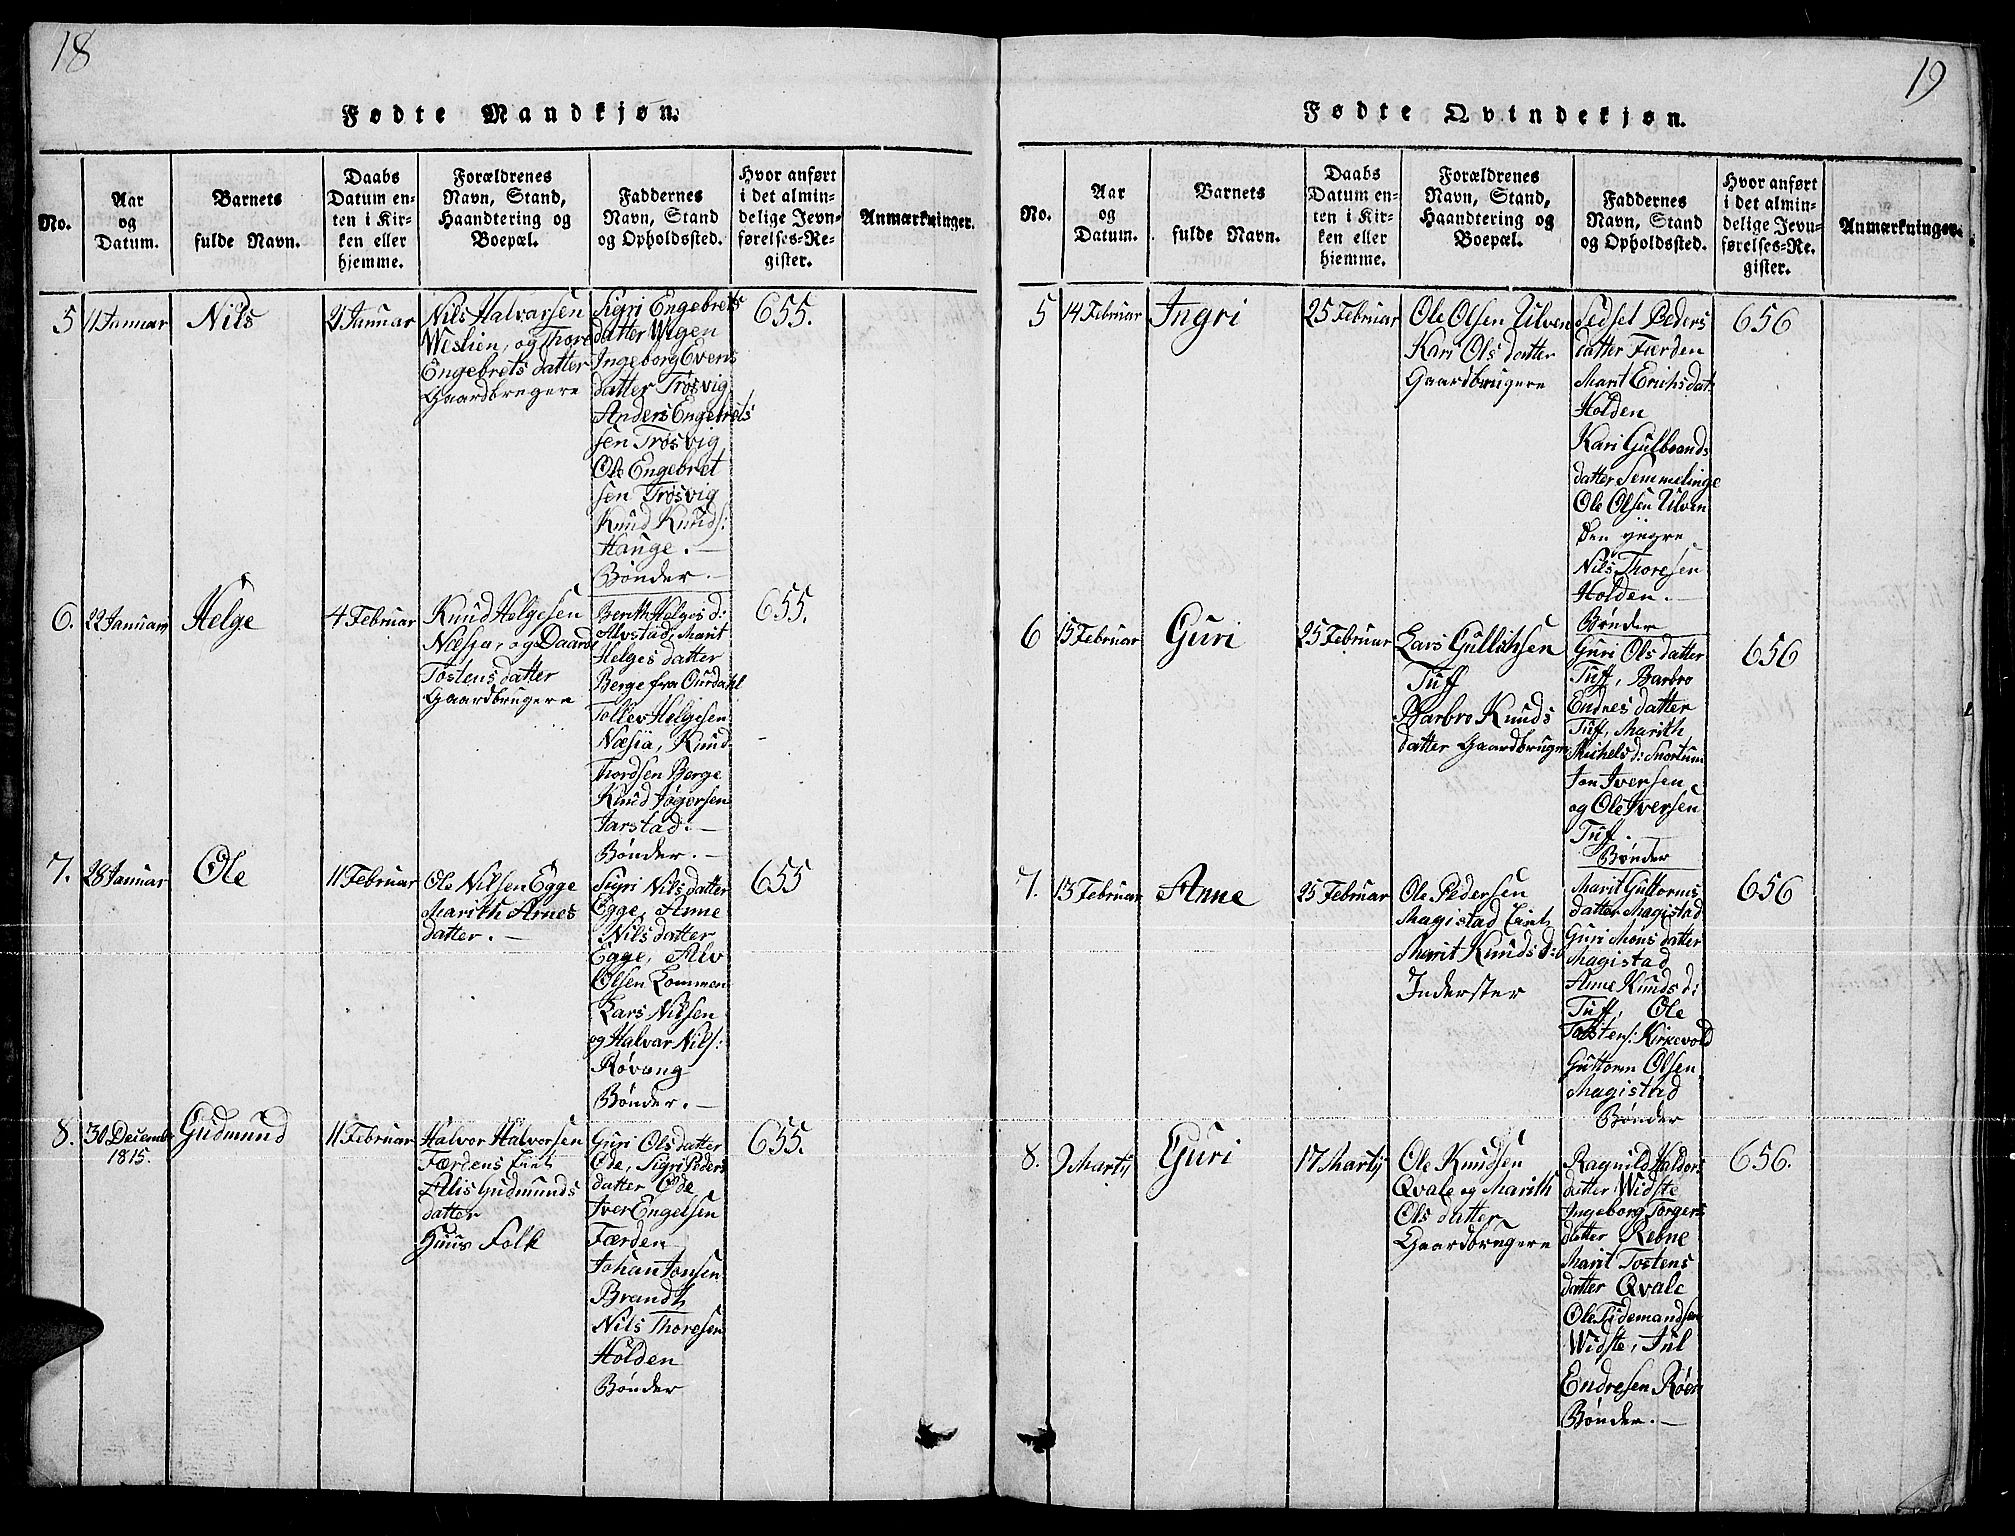 18
Fødte Mandkjøn.
No.
Aar
og
Datum.
Barnets
fulde Navn.
Daabs
Datum en-
ten i Kir-
ken eller
hjemme.
Forældrenes
Navn, Stand,
Haandtering og
Boepæl.
Faddernes
Navn, Stand
og Opholdssted.
Hvor anført
i det almin-
delige Jevn-
førelses-Re-
gister.
Anmærkninger.
5
11 Januar
Nils
21 Januar
Nils Halvorsen
Weslien, og Thore
Engebrets datter
Gaardbrugere
Sigri Engebrets
datter Wigen
Ingeborg Evens
datter Trøsvig
Anders Engebrets
sen Trøsvig
Ole Engebret
sen Trøsvig
Knud Knuds:
Hauge. —
Bønder. —
655.
6.
22 Januar
Helge
4 Februar
Knud Helgesen
Næsja, og Daard
Tostens datter
Gaardbrugere
Berith Helges d:
Alvstad, Marit
Helges datter
Berge fra Ourdahl
Tollev Helgesen
Næsja, Knud
Thordsen Berge
Knud Jøgersen
Jarstad. —
Bønder. —
655.
7.
28 Januar
Ole
11 Februar
Ole Nilsen Egge
Marith Arnes
datter. —
Sigri Nils datter
Egge, Anne
Nils datter
Egge, Alv
Olsen Lommen
Lars Nilsen
og Halvar Nils:
Røvang
Bønder. —
655
8.
30 Decembr
1815.
Gudmund
11 Februar
Halvor Halvorsen
Færdens Eiet
Alis Gudmunds
datter
Huus Folk
Guri Ols datter
Øde, Sigri Peders
datter Øde
Iver Engelsen
Færden
Johan Jonsen
Brandt
Nils Thoresen
Holden
Bønder
655.
19
Fødte Qvindekjøn.
No.
Aar
og
Datum.
Barnets
fulde Navn.
Daabs
Datum en-
ten i Kir-
ken eller
hjemme.
Forældrenes
Navn, Stand,
Haandtering og
Boepæl.
Faddernes
Navn, Stand
og Opholdssted.
Hvor anført
i det almin-
delige Jevn-
førelses-Re-
gister.
Anmærkninger.
5
14 Februar
Ingri
25 Februar
Ole Olsen Ulven
Kari Ols datter
Gaardbrugere
Sedsel Peders
datter Færden
Marit Erichs dat
Holden
Kari Gulbrands
datter Semmelinge
Ole Olsen Ulven
den yngre
Nils Thoresen
Holden. —
Bønder
656
6
15 Februar
Guri
25 Februar
Lars Gullichsen
Tuff
Barbro Knuds
datter Gaardbruger
Guri Ols datter
Tuff, Barbro
Endres datter
Tuff, Marith
Michels d: Snortum
Jon Iversen
og Ole Iversen
Tuff. —
Bønder
656
7.
13 Februar
Anne
25 Februar
Ole Pedersen
Magistad Eiet
Marit Knuds d:
Inderster
Marit Guttorms
datter Magistad
Guri Mons datter
Magistad
Anne Knuds d:
Tuff, Ole
Tostens: Kirkevold
Guttorm Olsen
Magistad
Bønder
656
8.
9 Martij
Guri
17 Martij
Ole Knudsen
Qvale og Marith
Ols datter
Gaardbrugere
Ragnild Haldors
datter Widste
Ingeborg Torgers
datter Rebne
Marit Tostens
datter Qvale
Ole Tidemandsen
Widste, Jul
Endresen Røen
Bønder. —
656.